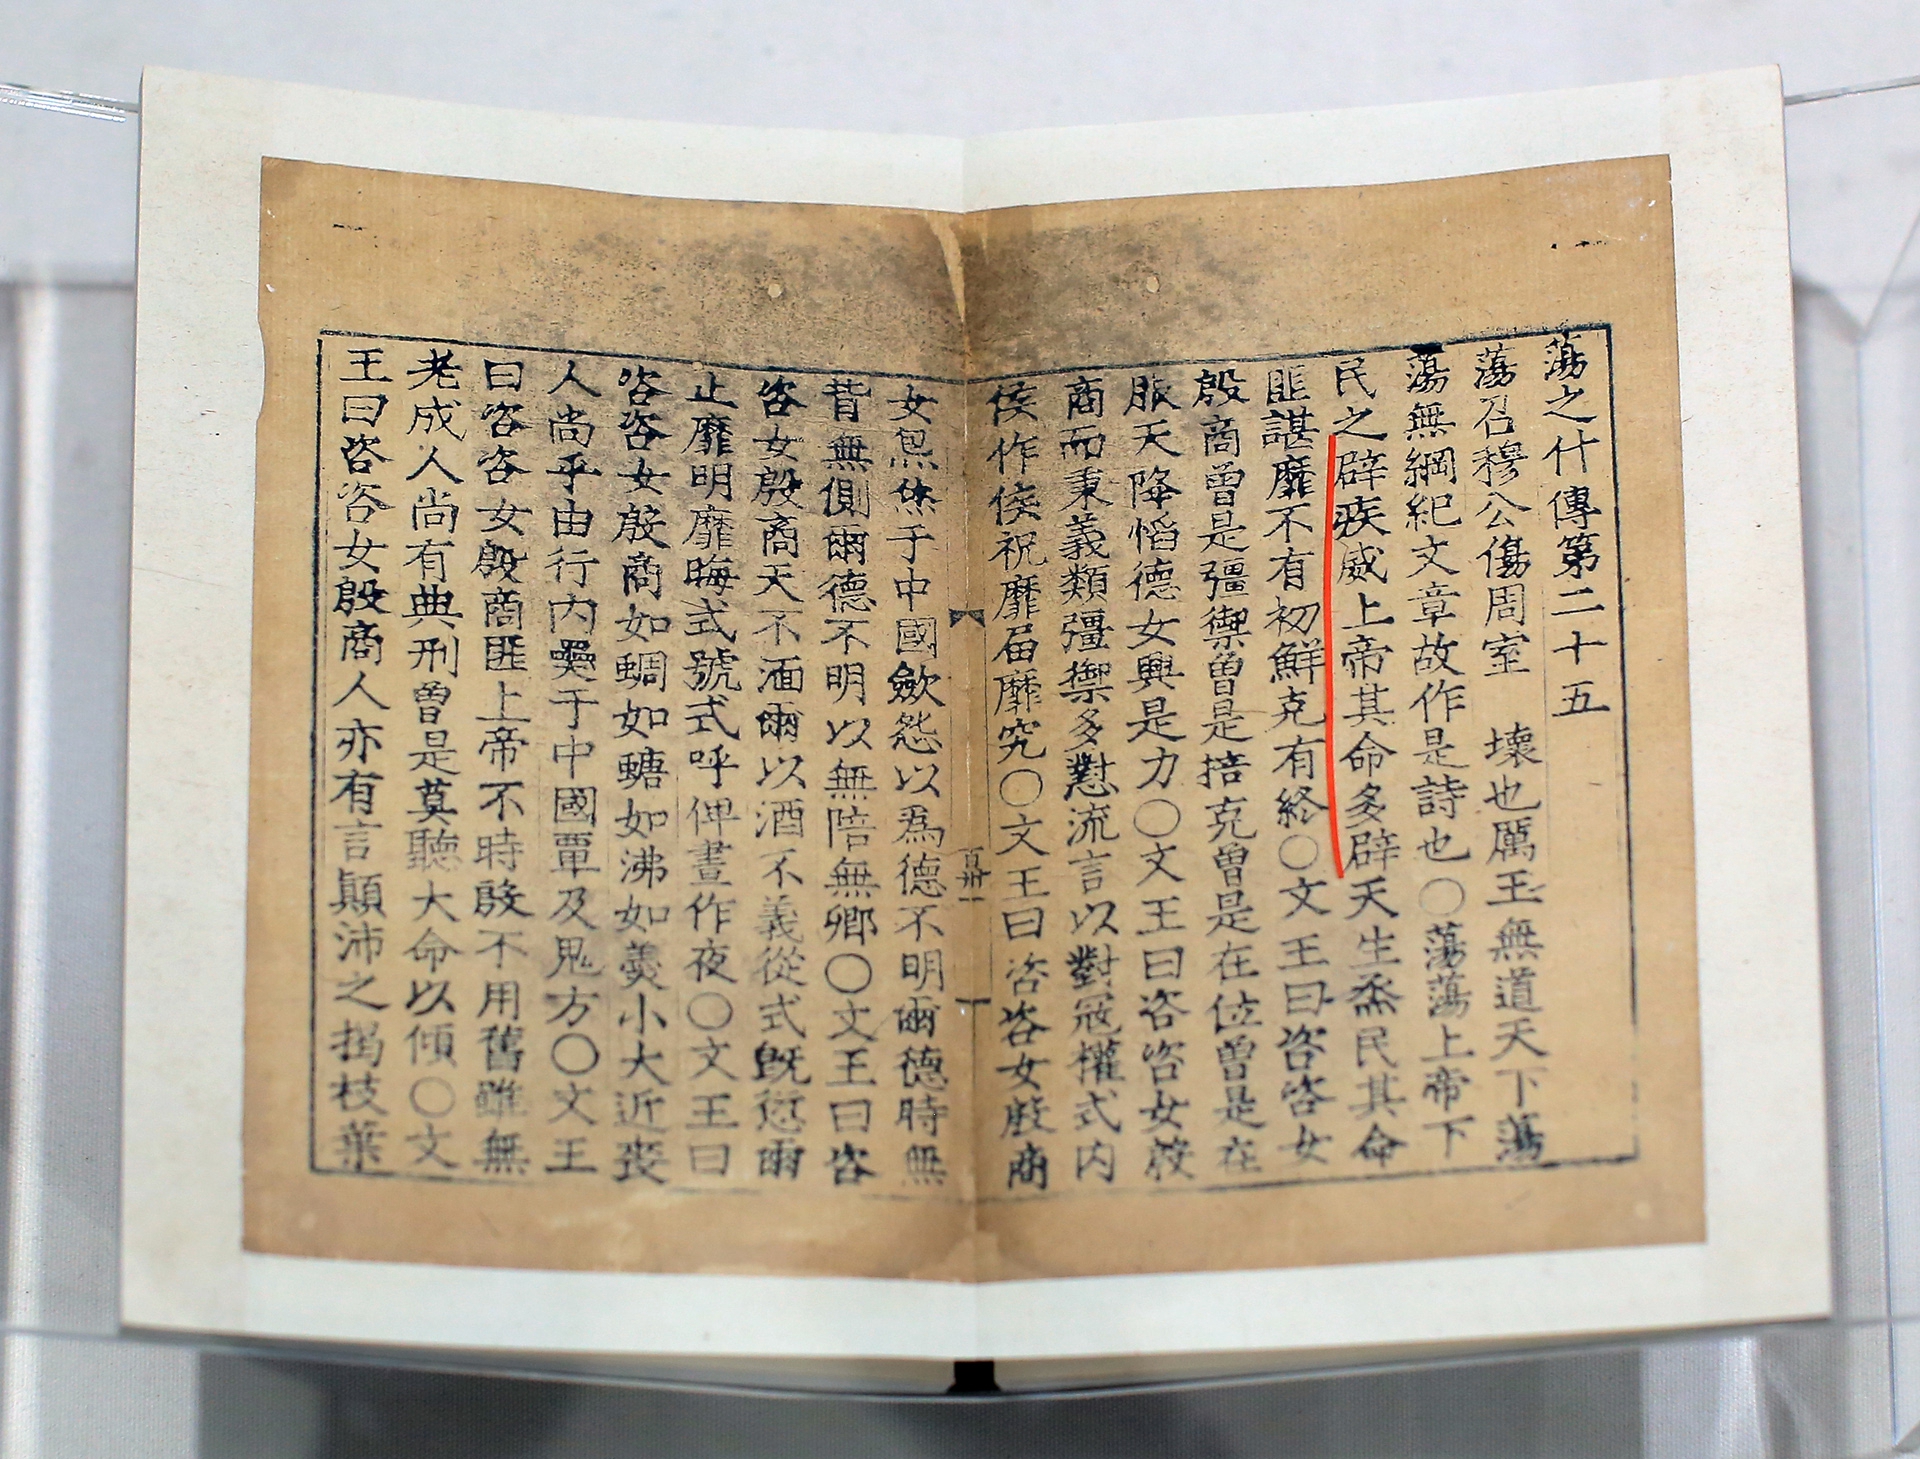 蕩之什傳第二十五
蕩召穆公傷周室 壞也厲王無道天下蕩
蕩無綱紀文章故作是詩也〇蕩蕩上帝下
民之辟疾威上帝其命多辟天生烝民其命
匪諶靡不有初鮮克有終〇文王曰咨咨女
殷商曾是彊禦曾是掊克曾是在位曾是在
服天降慆德女興是力〇文王曰咨咨女殷
商而秉義類彊禦多懟流言以對冦攘式內
侯作侯祝靡屆靡究〇文王曰咨咨女殷商
女炰烋于中國歛怨以爲德不明爾德時無
背無側爾德不明以無陪無卿〇文王曰咨
咨女殷商天不湎爾以酒不義從式旣愆爾
止靡明靡晦式號式呼俾晝作夜〇文王曰
咨咨女殷商如蜩如螗如沸如羹小大近喪
人尚乎由行內奰于中國覃及鬼方〇文王
曰咨咨女殷商匪上帝不時殷不用舊雖無
老成人尚有典刑曾是莫聽大命以傾〇文
王曰咨咨女殷商人亦有言顚沛之揭枝葉